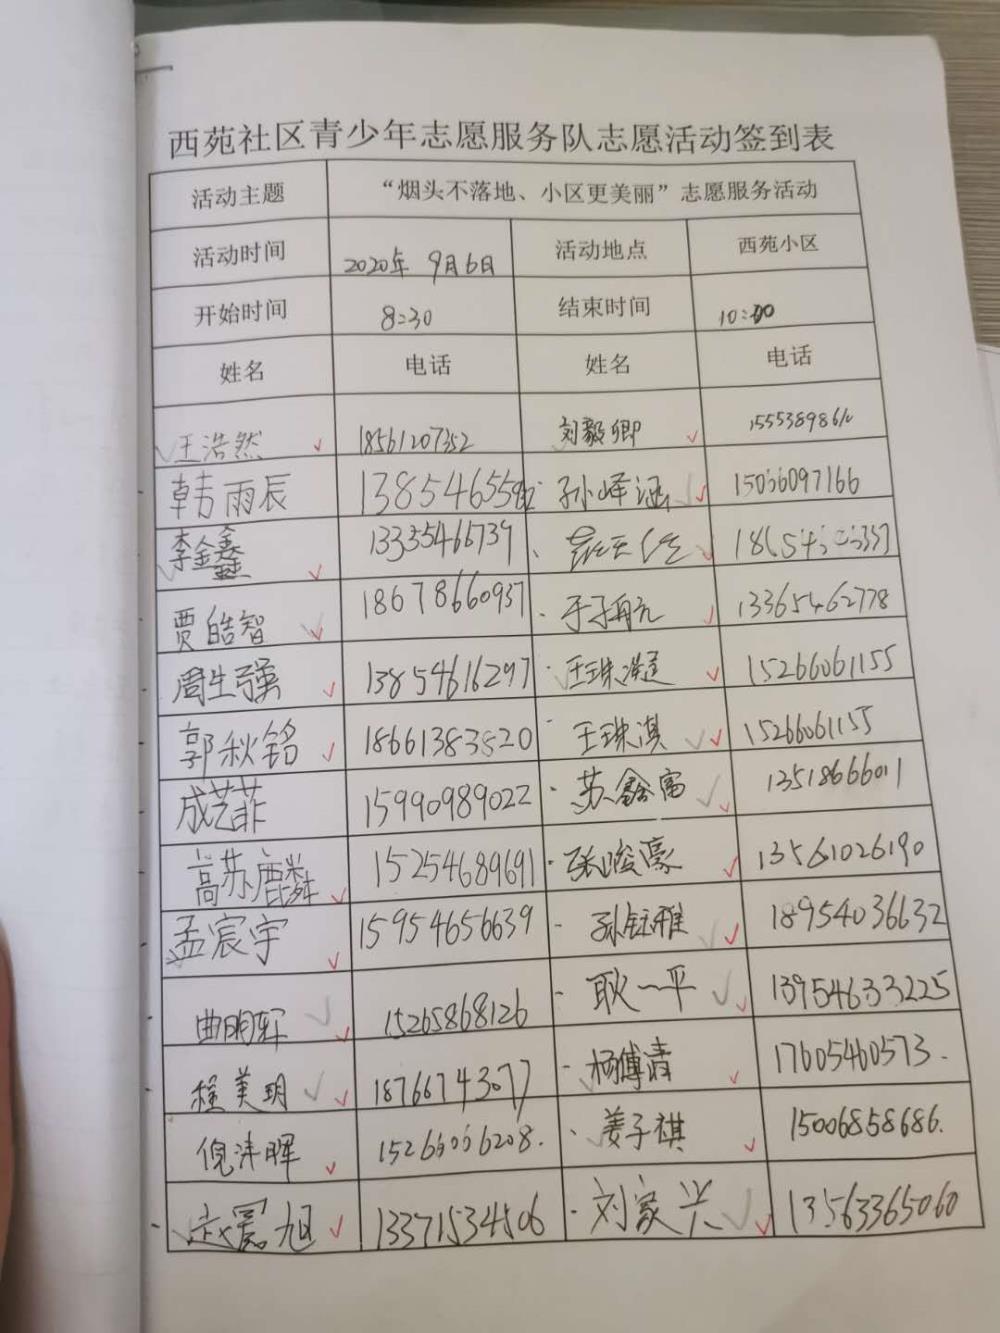 西苑社区青少年志愿服务队志愿活动签到表
活动主题 “烟头不落地、小区更美丽”志愿服务活动
活动时间 2020年 9月6日 活动地点 西苑小区
开始时间 8:30 结束时间 10:00
姓名 电话 姓名 电话
王浩然 18561207352 刘毅卿
韩雨辰 孙峄涵 15066097166
李金鑫 13355466739
贾皓智 18678660937 于子冉 13365462778
周生强 13854616297 王珠 15266061155
郭秋铭 18661383820 王珠淇 15266061155
成艺菲 15990989022 苏鑫富 13518666011
高苏麟 15254689691 张峻豪 13561026190
孟宸宇 15954656639 孙钰雅 18954036632
曲明轩 15265868126 耿一平 13954633225
程美玥 18766743077 杨博清 17605460573.
倪沣晖 15266066208. 姜子祺 15006858686.
旭 13371534506 刘家兴 13563365060